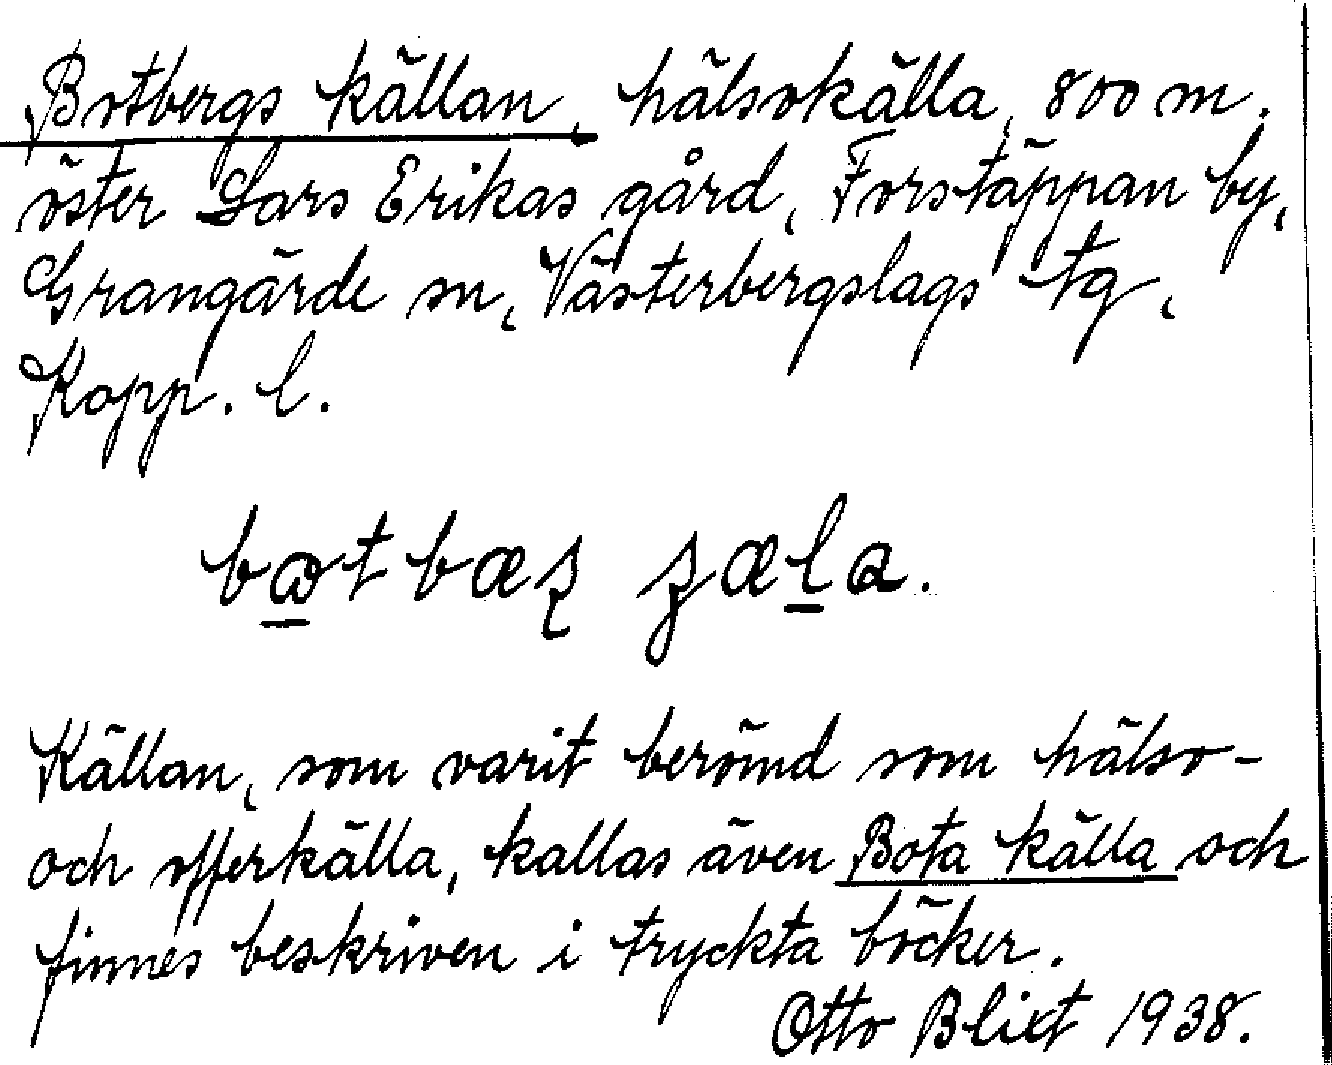 Botbergs källan, hälsokälla, 800 m.
öster Lars Erikas gård, Forstäppan by,
Grangärde sn, Västerbergslags tg,
Kopp. l.
Källan, som varit berömd som hälso-
och offerkälla, kallas även Bota källa och
finnes beskriven i tryckta böcker.
Otto Blixt 1938.